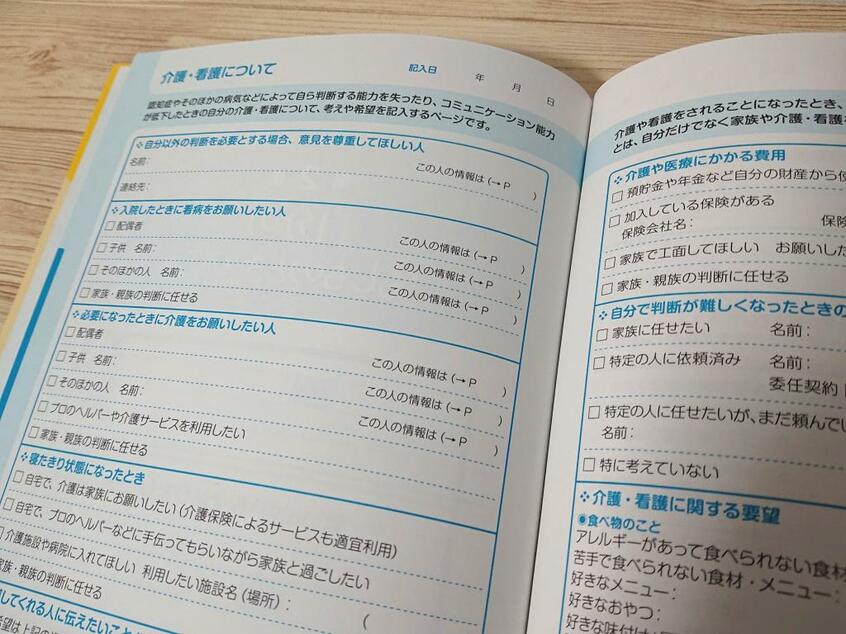 介護・看護について
記入日 年 月 日
認知症やそのほかの病気などによって自ら判断する能力を失ったり、コミュニケーション能力
が低下したときの自分の介護・看護について、考えや希望を記入するページです。
自分以外の判断を必要とする場合、意見を尊重してほしい人
名前： この人の情報は（→P ）
連絡先：
入院したときに看病をお願いしたい人
□配偶者 この人の情報は（→P ）
□子供 名前： この人の情報は（→P ）
□そのほかの人 名前： この人の情報は（→P ）
□家族・親族の判断に任せる
必要になったときに介護をお願いしたい人
□配偶者 この人の情報は（→P ）
□子供 名前： この人の情報は（→P ）
□そのほかの人 名前： この人の情報は（→P ）
□プロのヘルパーや介護サービスを利用したい
□家族・親族の判断に任せる
寝たきり状態になったとき
□自宅で、介護は家族にお願いしたい（介護保険によるサービスも適宜利用）
□自宅で、プロのヘルパーなどに手伝ってもらいながら家族と過ごしたい
介護施設や病院に入れてほしい 利用したい施設名（場所）： （
族・親族の判断に任せる
してくれる人に伝えたいこと
希望は上記の
介護や看護をされることになったとき、
とは、自分だけでなく家族や介護・看護
介護や医療にかかる費用
□預貯金や年金など自分の財産から使
□加入している保険がある
保険会社名： 保険
□家族で工面してほしい お願いした
□家族・親族の判断に任せる
自分で判断が難しくなったときの
□家族に任せたい 名前：
□特定の人に依頼済み 名前：
委任契約
□特定の人に任せたいが、まだ頼んでい
名前：
□特に考えていない
介護・看護に関する要望
●食べ物のこと
アレルギーがあって食べられない食材
苦手で食べられない食材・メニュー：
好きなメニュー：
好きなおやつ：
好きな味付け